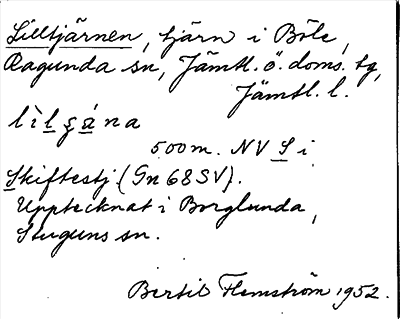 Silltjärnen, tjärn i Böle,
Ragunda sn, Jämtl. ö. doms. tg,
Jämtl. l.
lìlʂa̲na
500 m. NV S i
Skiftestj (Gn 68 SV).
Upptecknat i Borglunda,
Stuguns sn.
Bertil Flemström 1952.